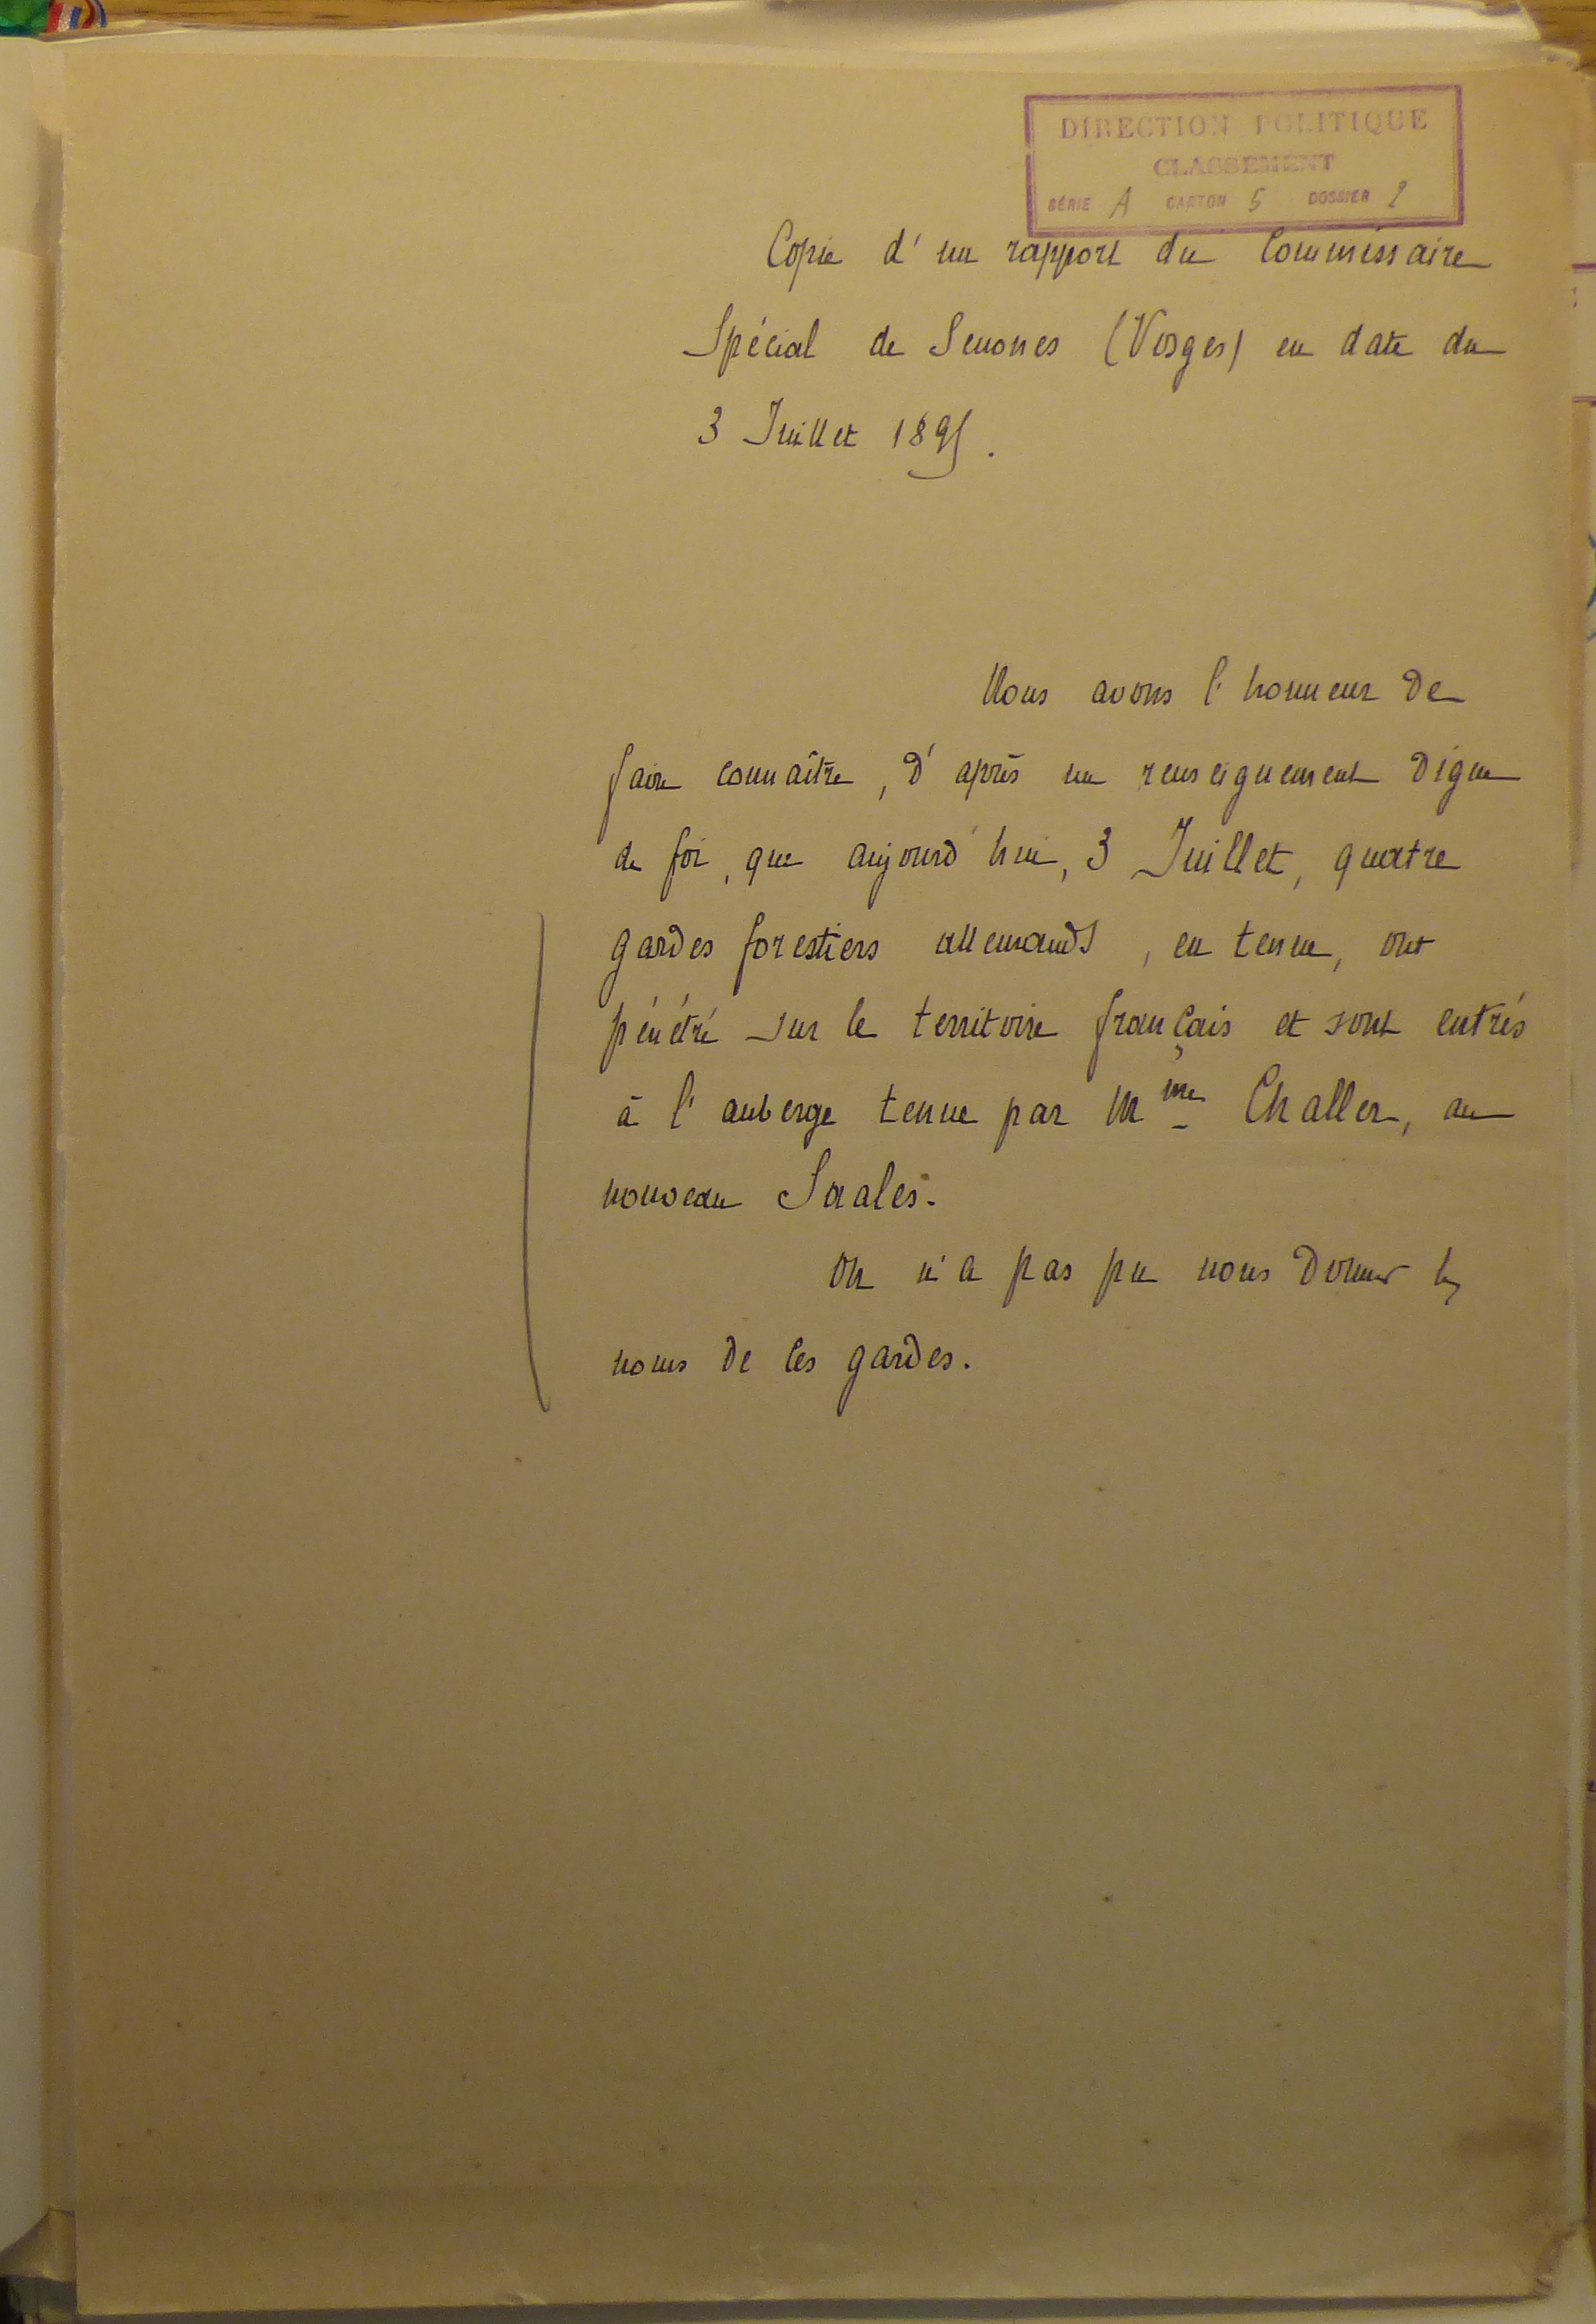 DIRECTION POLITIQUE
CLASSEMENT
SÉRIE A CARTON 5 DOSSIER 2
Copie d'un rapport du Commissaire
Spécial de Senones (Vosges) en date du
3 Juillet 1895.
Nous avons l'honneur de
faire connaître, d'après un renseignement digne
de foi, que aujourd'hui, 3 Juillet, quatre
gardes forestiers allemands, en tenue, ont
pénétré sur le territoire français et sont entrés
à l'auberge tenue par Mme Challer, au
nouveau Saales.
On n'a pas pu nous donner les
noms de ces gardes.